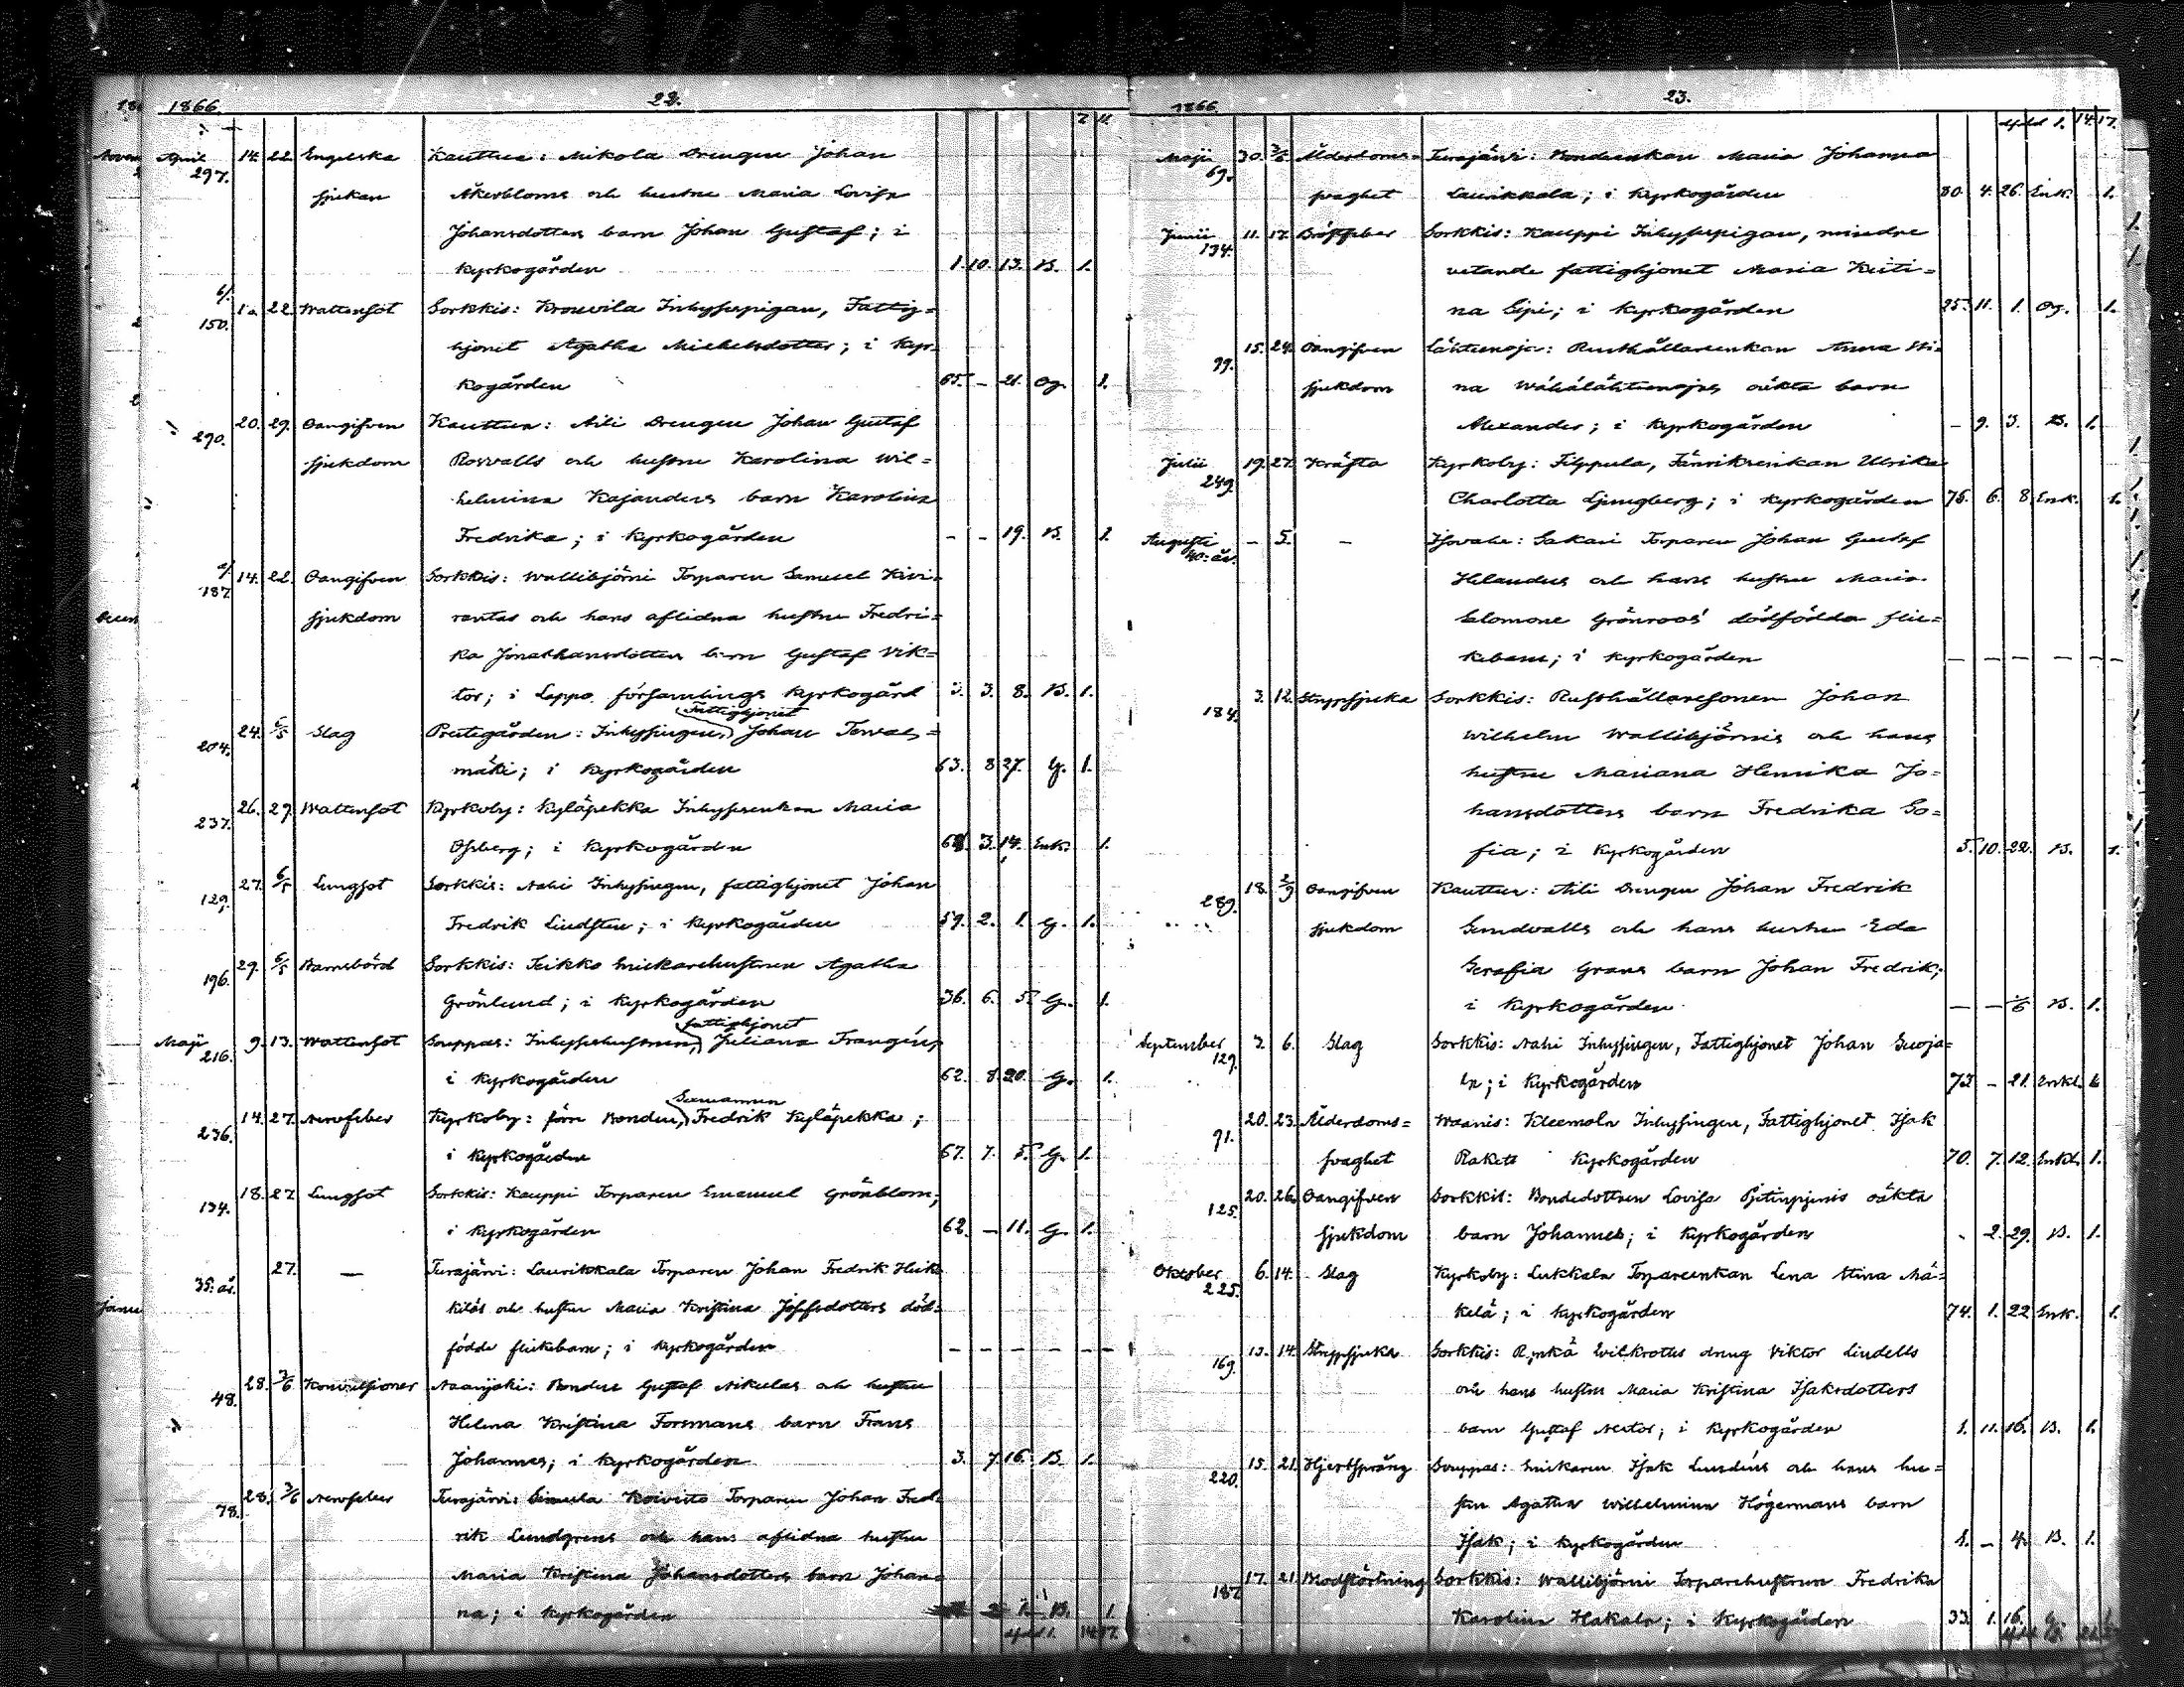 1866. 22.
April 14. 22. Engelska Kauttua: Mikola Drengen Johan
297. sjukan Åkerbloms och hustru Maria Lovisa
Johansdotters barn Johan Gustaf; i
kyrkogården 1. 10. 13. B. 1.
150. 22. Wattensot Sorkkis: Krouvila Inhysespigan, Fattig=
hjonet Agatha Michelsdotter; i kyr-
kogården 65. - 21. Og. 1.
290. 20. 29. Oangifven Kauttua: Aili Drengen Johan Gustaf
sjukdom Rosvalls och hustru Karolina Wil=
helmina Kajanders barn Karolina
Fredrika; i kyrkogården - - 19. B. 1.
187. 14. 22. Oangifven Sorkkis: Wallibjörni Torparen Samuel Kivi-
sjukdom rantas och hans aflidna hustru Fredri=
ka Jonathansdotters barn Gustaf Vik=
tor; i Lappo församlings kyrkogård 3. 3. 8. B. 1.
Fattighjonet
204. 24. 6/5 Slag Prestegården: Inhysingen, Johan Tervas=
mäki; i kyrkogården 63. 8 27. G. 1.
237. 26. 29. Wattensot Kyrkoby: Kyläpekka Inhysesenkan Maria
Osberg; i kyrkogården 3. 14. Enk. 1.
129. 27. 6/5 Lungsot Sorkkis: Nahi Inhysingen, fattighjonet Johan
Fredrik Lindsten; i kyrkogården 59. 2. 1. G. 1.
196. 29. 6/5 Barnsbörd Sorkkis: Seikko Snickarehustrun Agatha
Grönlund; i kyrkogården 36. 6. 5. G. 1.
fattighjonet
Maji 216. 9. 13. Wattensot Souppas: Inhyseshustrun, Juliana Frangén;
i kyrkogården 62. 8 20. G. 1.
236. 14. 27. Nervfeber Kyrkoby: förre Bonden, Fredrik Kyläpekka;
i kyrkogården 67. 7. 5. G. 1.
134. 18. 27 Lungsot Sorkkis: Kauppi Torparen Emanuel Grönblom;
i kyrkogården 62. - 11. G. 1.
27. — Turajärvi: Laurikkala Torparen Johan Fredrik Heik-
kiläs och hustru Maria Kristina Josefsdotters död=
födde flickebarn; i kyrkogården - - - - - -
48. 28. 3/6 Konvulsioner Naarjoki: Bonden Gustaf Nikulas och hustru
Helena Kristina Forsmans barn Frans
Johannes; i kyrkogården 3. 7 16. B. 1.
78. 28. 3/6 Nervfeber Turajärvi: Simula Koivisto Torparen Johan Fred-
rik Lundgrens och hans aflidna hustru
Maria Kristina Johansdotters barn Johan=
na; i kyrkogården B. 1
1866. 23.
14. 17.
Maji 69. 30. 3/6 Ålderdoms= Turajärvi: Bondeenkan Maria Johanna
svaghet Laurikkala; i kyrkogården 80. 4. 26. Enk. 1.
Junii 134. 11. 17. Bröstfeber Sorkkis: Kauppi Inhysespigan, mindre
vetande fattighjonet Maria Kristi=
na Sipi; i kyrkogården 25. 11. 1. Og. 1.
99. 15. 24. Oangifven Lähteenoja: Rusthållareenkan Anna Sti=
sjukdom na Wähälähteenojas oäkta barn
Alexander; i kyrkogården - 9. 3. B. 1.
Julii 249. 19. 27. Kräfta Kyrkoby: Filppula, Fänriksenkan Ulrika
Charlotta Ljungberg; i kyrkogården 76. 6. 8 Enk. 1.
Augusti - 5. - Isovahe: Sakari Torparen Johan Gustaf
Helanders och hans hustru Maria
Salomone Grönroos' dödfödda flic=
kebarn; i kyrkogården - - - - - -
184. 3. 12. Strypsjuka Sorkkis: Rusthållaresonen Johan
Wilhelm Wallibjörnis och hans
hustru Mariana Henrika Jo=
hansdotters barn Fredrika So=
fia; i kyrkogården 5. 10. 22. B. 1.
289. 18. 2/9 Oangifven Kauttua: Aili Drengen Johan Fredrik
sjukdom Sundvalls och hans hustru Eda
Serafia Grans barn Johan Fredrik;
i kyrkogården - - B. 1.
September 129. 3. 6. Slag Sorkkis: Nahi Inhysingen, Fattighjonet Johan Suoja=
; i kyrkogården 72. - 21. Enkl. 1.
91. 20. 23. Ålderdoms= Waanis: Kleemola Inhysingen, Fattighjonet Isak
svaghet Raket kyrkogården 70. 7. 12. Enkl. 1.
125. 20. 26. Oangifven Sorkkis: Bondedottren Lovisa oäkta
sjukdom barn Johannes; i kyrkogården - 2. 29. B. 1.
Oktober 225. 6. 14. Slag Kyrkoby: Lukkala Torpareenkan Lena Stina Mä=
kelä; i kyrkogården 74. 1. 22 Enk. 1.
169. 13. 14. Strypsjuka Sorkkis: dreng Viktor Lindells
och hans hustru Maria Kristina Isaksdotters
barn Gustaf Nestor; i kyrkogården 1. 11. 16. B. 1.
220. 15. 21. Hjertsprång Souppas: Snickaren Isak Lundéns och hans hu=
stru Agatha Wilhelmina Högermans barn
Isak; i kyrkogården 1. - 4. B. 1.
187 17. 21 Blodstörtning Sorkkis: Wallibjörni Torparehustrun Fredrika
Karolina Hakala; i kyrkogården 33. 1. 16. G.